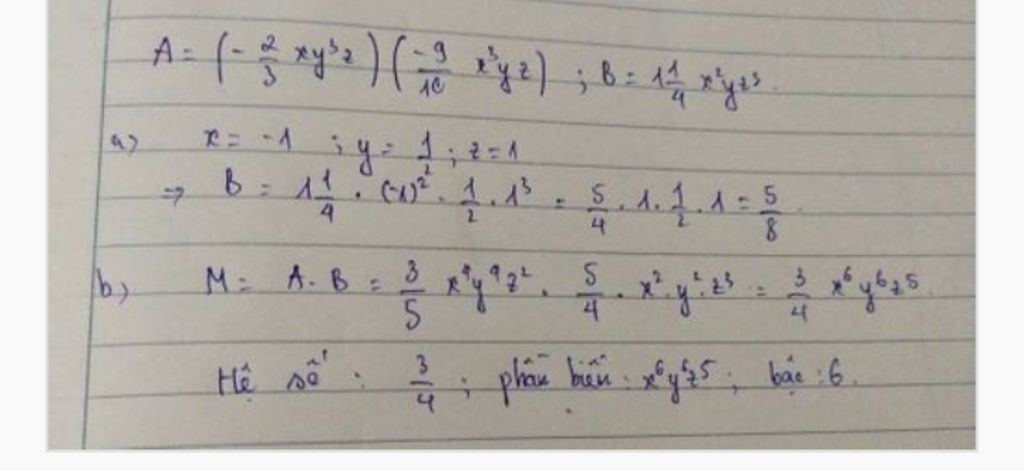 A = (- 2/3 xy³z) (-9/10 x³yz) ; B = 1 1/4 x²yz³.
a) x = -1 ; y = 1/2 ; z = 1
=> B = 1 1/4 . (-1)² . 1/2 . 1³ = 5/4 . 1 . 1/2 . 1 = 5/8.
b) M = A . B = 3/5 x⁴y⁴z² . 5/4 . x² . y² . z³ = 3/4 x⁶y⁶z⁵
Hệ số : 3/4 ; phần biến : x⁶y⁶z⁵ ; bậc : 6.